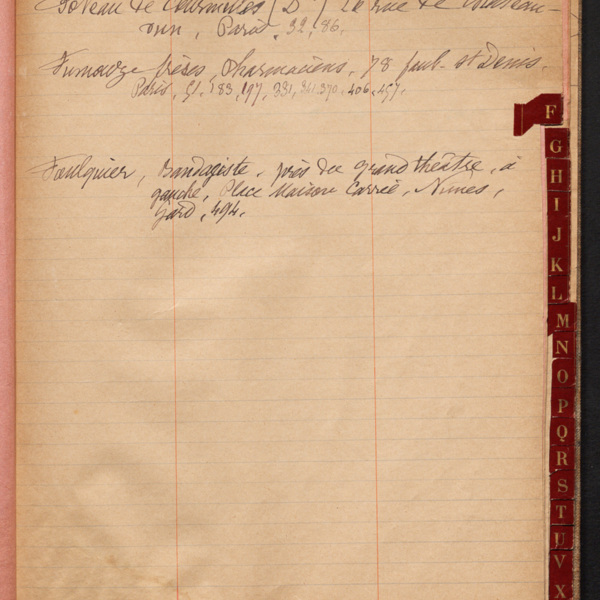 Foveau de Courmelles (Dr) 26 rue de Châteaudun, Paris, 32, 86.
Fumouze frères, Pharmaciens, 78 faub. St Denis.
Paris, 51, 183, 197, 331, 341, 370, 406, 457.
Faulquier, Bandagiste, près du grand théâtre, à
gauche, Place Maison Carrée, Nimes,
Gard, 494.
F
G
H
I
J
K
L
M
N
O
P
Q
R
S
T
U
V
X